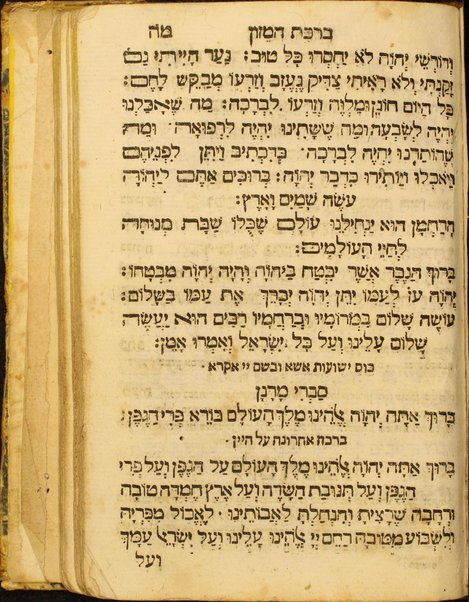 ברכת המזון מה
ודורשי יהוה לא יחסרו כל טוב: נער הייתי גם
זקנתי ולא ראיתי צדיק נעזב וזרעו מבקש לחם:
כל היום חונן ומלוה וזרעו לברכה: מה שאכלנו
יהיה לשבעה ומה ששתינו יהיה לרפואה ומה
שהותרנו יהיה לברכה כדכתיב ויתן לפניהם
ויאכלו ויותירו כדבר יהוה: ברוכים אתם ליהוה
עשה שמים וארץ:
הרחמן הוא ינחילנו עולם שכלו שבת מנוחה
לחיי העולמים:
ברוך הגבר אשר יבטח ביהוה והיה יהוה מבטחו:
יהוה עז לעמו יתן יהוה יברך את עמו בשלום:
עושה שלום במרומיו וברחמיו רבים הוא יעשה
שלום עלינו ועל כל ישראל ואמרו אמן:
כוס ישועות אשא ובשם יי אקרא
סברי מרנן
ברוך אתה יהוה אלהינו מלך העולם בורא פרי הגפן
ברכה אחרונה על היין
ברוך אתה יהוה אלהינו מלך העולם על הגפן ועל פרי
הגפן ועל תנובת השדה ועל ארץ חמדה טובה
ורחבה שרצית והנחלת לאבותינו לאכול מפריה
ולשבוע מטובה רחם יי אלהינו עלינו ועל ישראל עמך
ועל